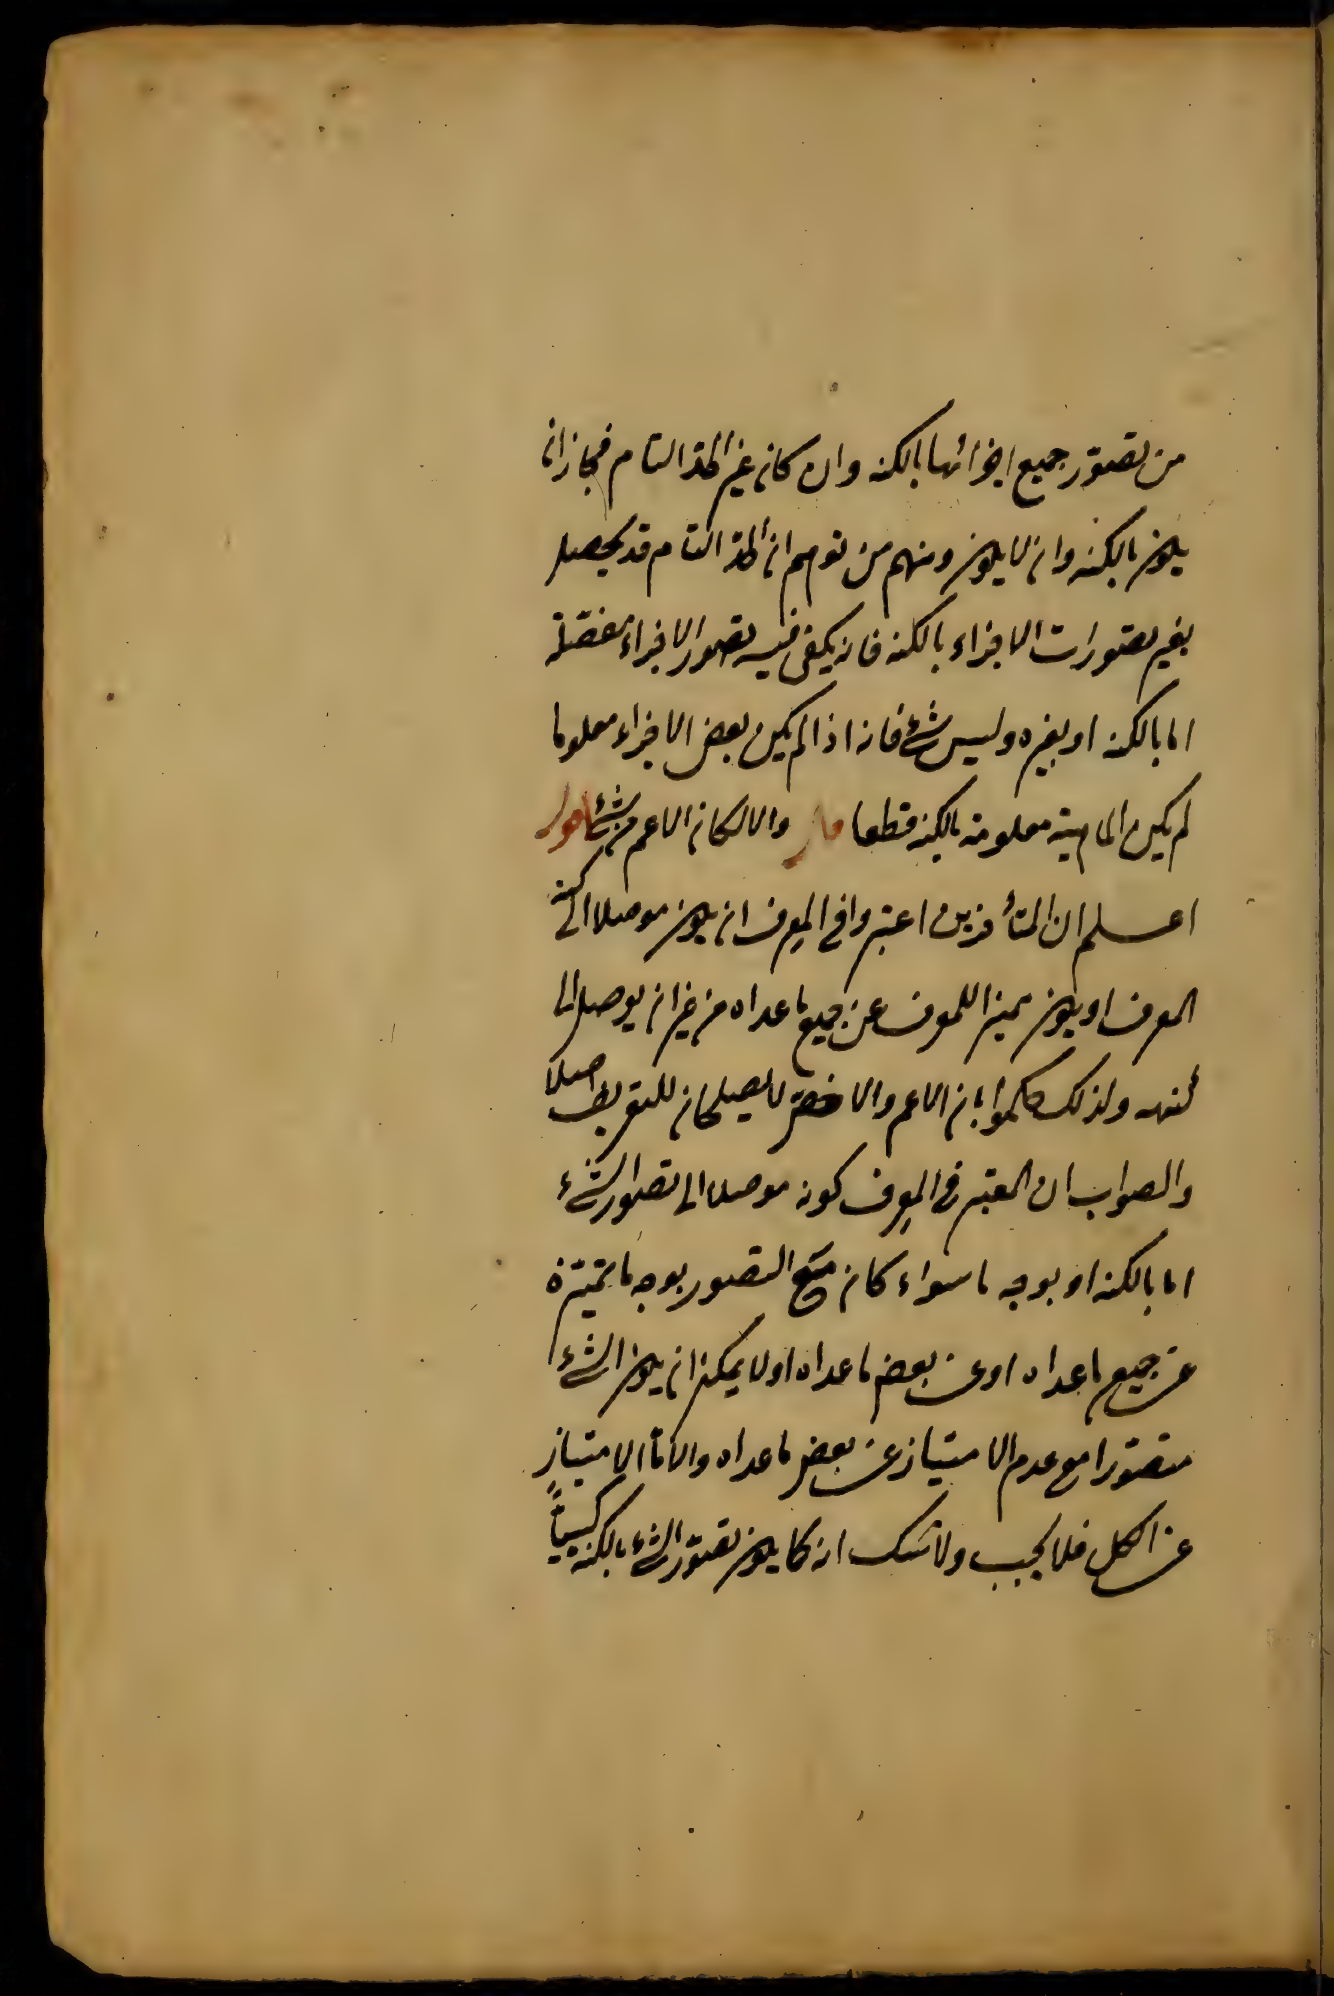 من تصوّر جميع اجزائها بالكنه وان كان غير الحد التام فجاز ان
يكون بالكنه وان لا يكون ومنهم من توهم ان الحد التام قد يحصل
بغير تصورات الاجزاء بالكنه فانه يكفى فيه تصور الاجزاء مفصّلة
اما بالكنه او بغيره وليس بشئ فانه اذا لم يكن بعض الاجزاء معلوما
لم يكن الماهية معلومة بالكنه قطعا قال والا لكان الاعم من شئ اقول
اعلم ان المتأخرين اعتبروا فى المعرف ان يكون موصلا الى كنه
المعرف او يكون مميزا للمعرف عن جميع ما عداه من غير ان يوصل الى
كنهه ولذلك حكموا بان الاعم والاخصّ لا يصلحان للتعريف اصلا
والصواب ان المعتبر فى المعرِف كونه موصلا الى تصور الشئ
اما بالكنه او بوجه ما سواء كان مع التصور بوجه ما تميّزه
عن جميع ما عداه او عن بعض ما عداه اذ لا يمكن ان يكون الشئ
متصوّرا مع عدم الامتياز عن بعض ما عداه والامّا الامتياز
عن الكل فلا يجب ولا شك انه كما يكون تصوّر الشئ بالكنه كسبيّاً